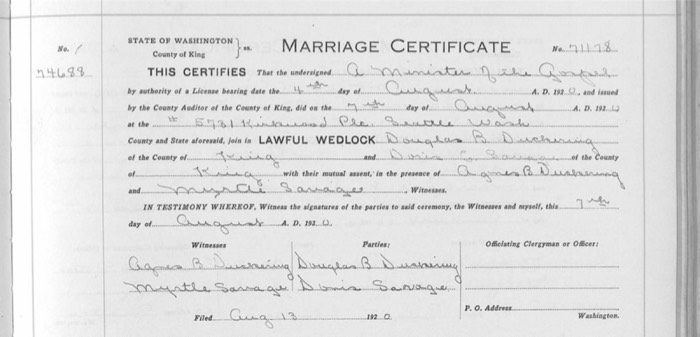 No. 1
74688
STATE OF WASHINGTON } ss.
County of King
MARRIAGE CERTIFICATE
No. 71178
THIS CERTIFIES That the undersigned A Minister of the Gospel
by authority of a License bearing date the 4th day of August A. D. 1920, and issued
by the County Auditor of the County of King, did on the 7th day of August A. D. 1920
at the # 5731 Kirkwood Plc. Seattle Wash
County and State aforesaid, join in LAWFUL WEDLOCK Douglas B Duckering
of the County of King and Doris Savage of the County
of King with their mutual assent, in the presence of Agnes B. Duckering
and Myrtle Savage, Witnesses.
IN TESTIMONY WHEREOF, Witness the signatures of the parties to said ceremony, the Witnesses and myself, this 7th
day of August A. D. 1920.
Witnesses Parties: Officiating Clergyman or Officer:
Agnes B Duckering Douglas B Duckering
Myrtle Savage Doris Savage
P. O. Address
Washington.
Filed Aug 13 1920